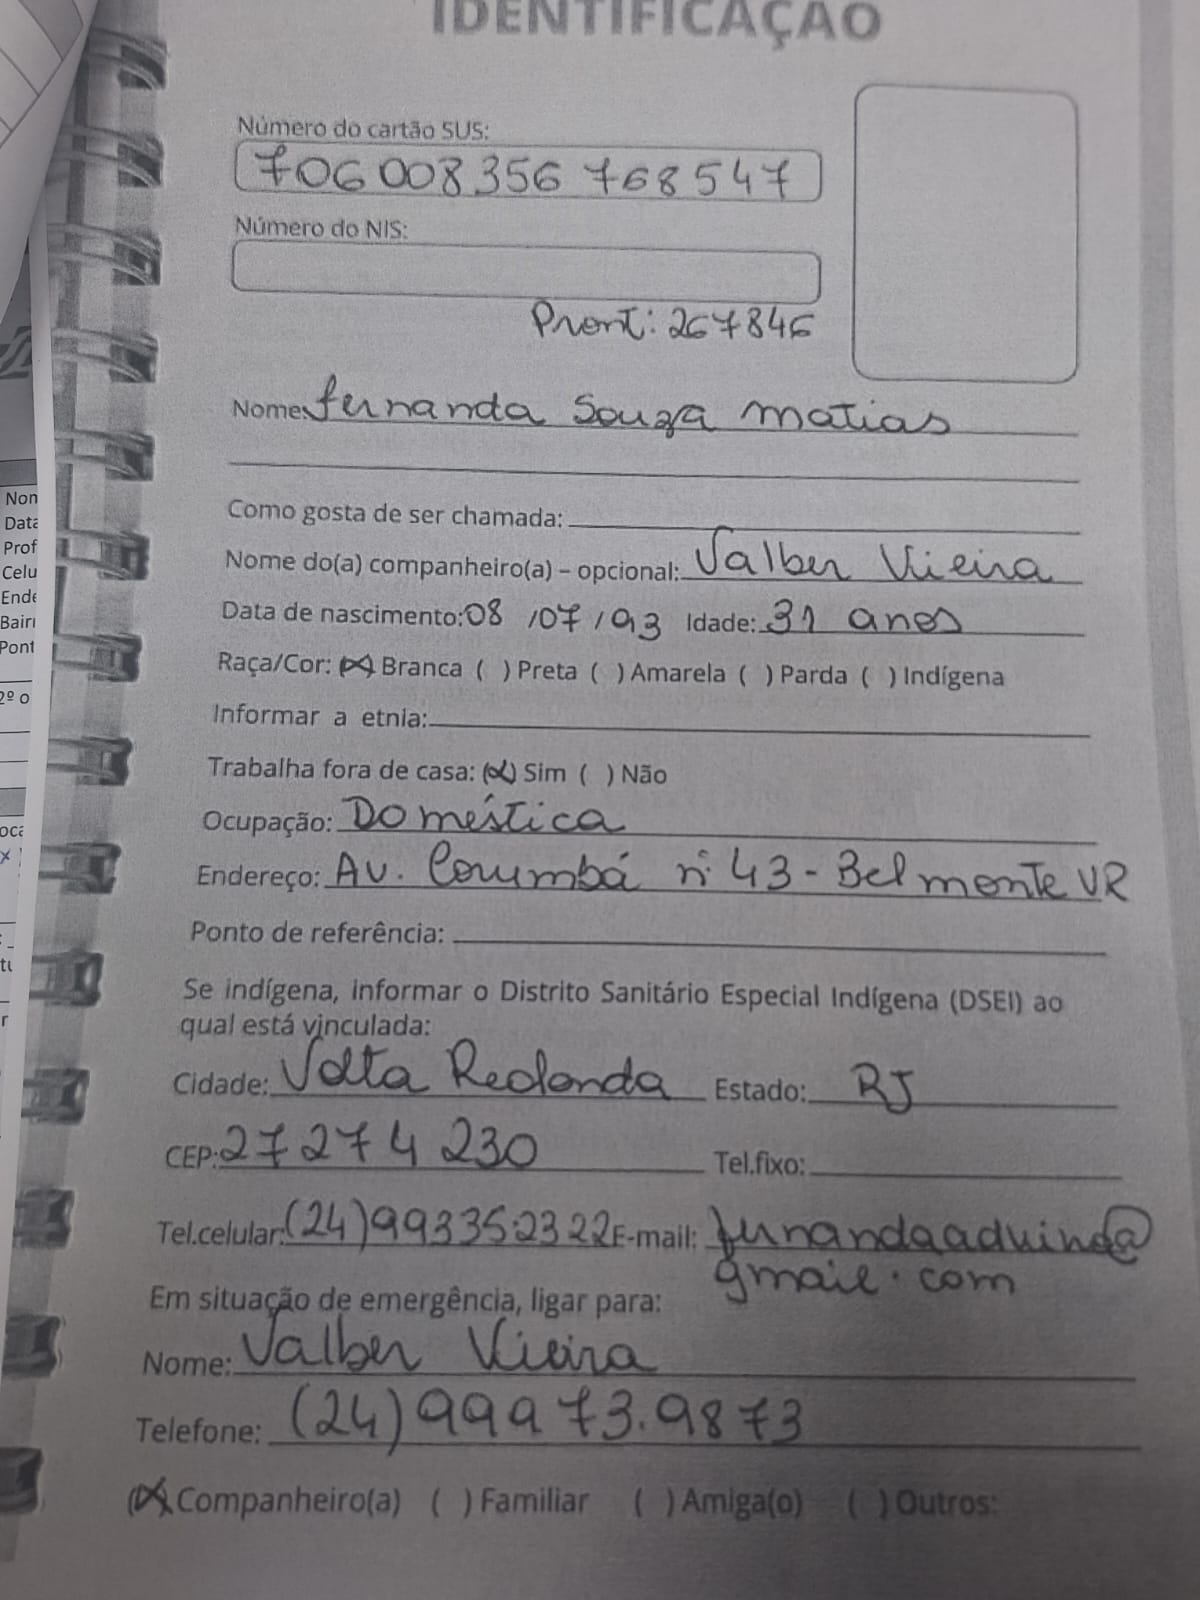 IDENTIFICAÇÃO
Número do cartão SUS:
706 008 356 768 547
Número do NIS:
Pront: 267846
Nome: Fernanda Souza Matias
Como gosta de ser chamada:
Nome do(a) companheiro(a) – opcional: Valber Vieira
Data de nascimento: 08 / 07 / 93 Idade: 31 anos
Raça/Cor: (X) Branca ( ) Preta ( ) Amarela ( ) Parda ( ) Indígena
Informar a etnia:
Trabalha fora de casa: (X) Sim ( ) Não
Ocupação: Doméstica
Endereço: Av. Corumbá nº 43 - Belmonte VR
Ponto de referência:
Se indígena, informar o Distrito Sanitário Especial Indígena (DSEI) ao
qual está vinculada:
Cidade: Volta Redonda Estado: RJ
CEP: 27274 230 Tel.fixo:
Tel.celular: (24) 99335.2322 E-mail:
gmail.com
Em situação de emergência, ligar para:
Nome: Valber Vieira
Telefone: (24) 99973.9873
(X) Companheiro(a) ( ) Familiar ( ) Amiga(o) ( ) Outros: